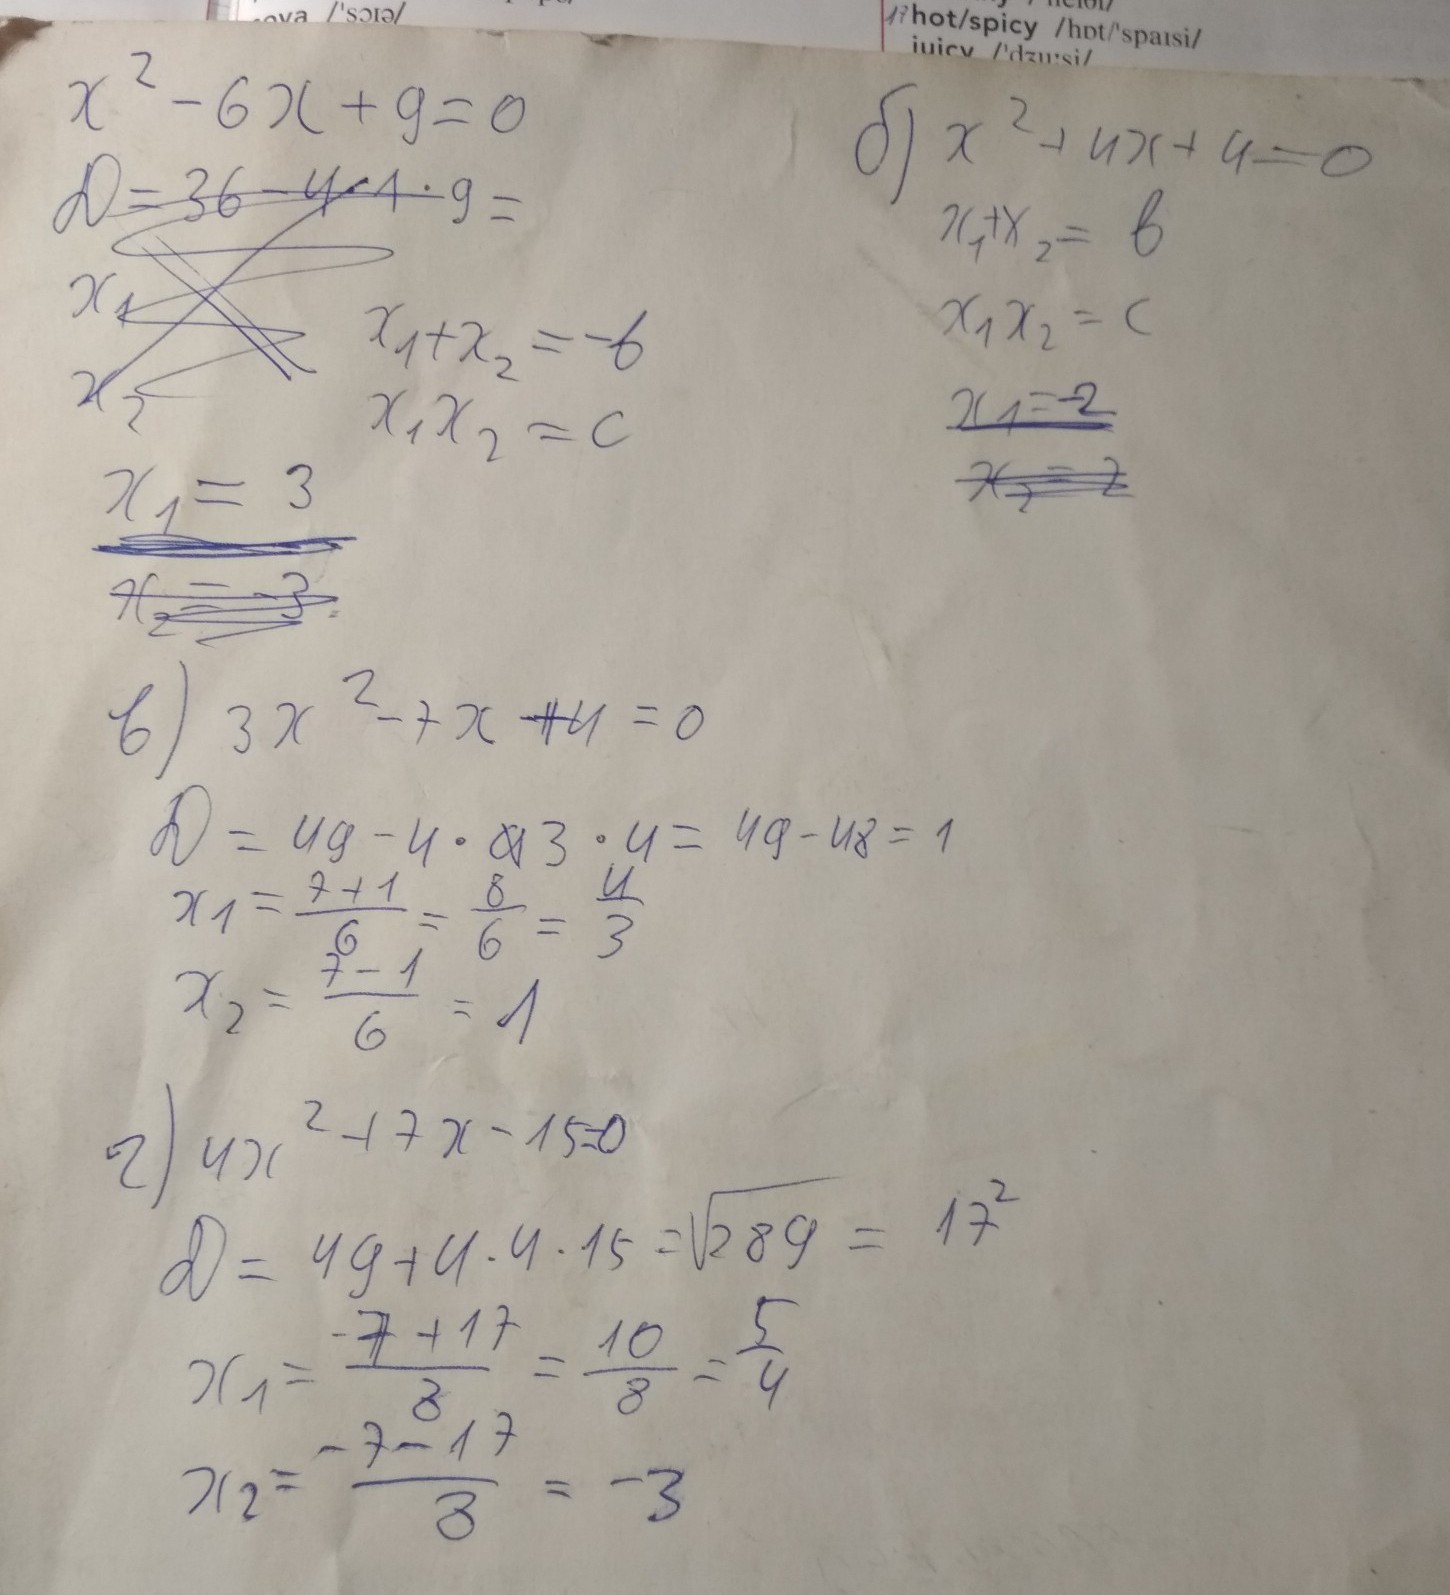 /'sɔɪə/
17 hot/spicy /hɒt/'spaɪsi/
juicy /'dʒuːsi/
x² - 6x + 9 = 0
D = 36 - 4·1·9 =
x₁
x₂
x₁ + x₂ = -b
x₁x₂ = c
x₁ = 3
x₂ = -3
б) x² + 4x + 4 = 0
x₁ + x₂ = b
x₁x₂ = c
x₁ = -2
x₂ = 2
в) 3x² - 7x + 4 = 0
D = 49 - 4·3·4 = 49 - 48 = 1
x₁ = (7+1)/6 = 8/6 = 4/3
x₂ = (7-1)/6 = 1
г) 4x² + 7x - 15 = 0
D = 49 + 4·4·15 = √289 = 17²
x₁ = (-7+17)/8 = 10/8 = 5/4
x₂ = (-7-17)/8 = -3